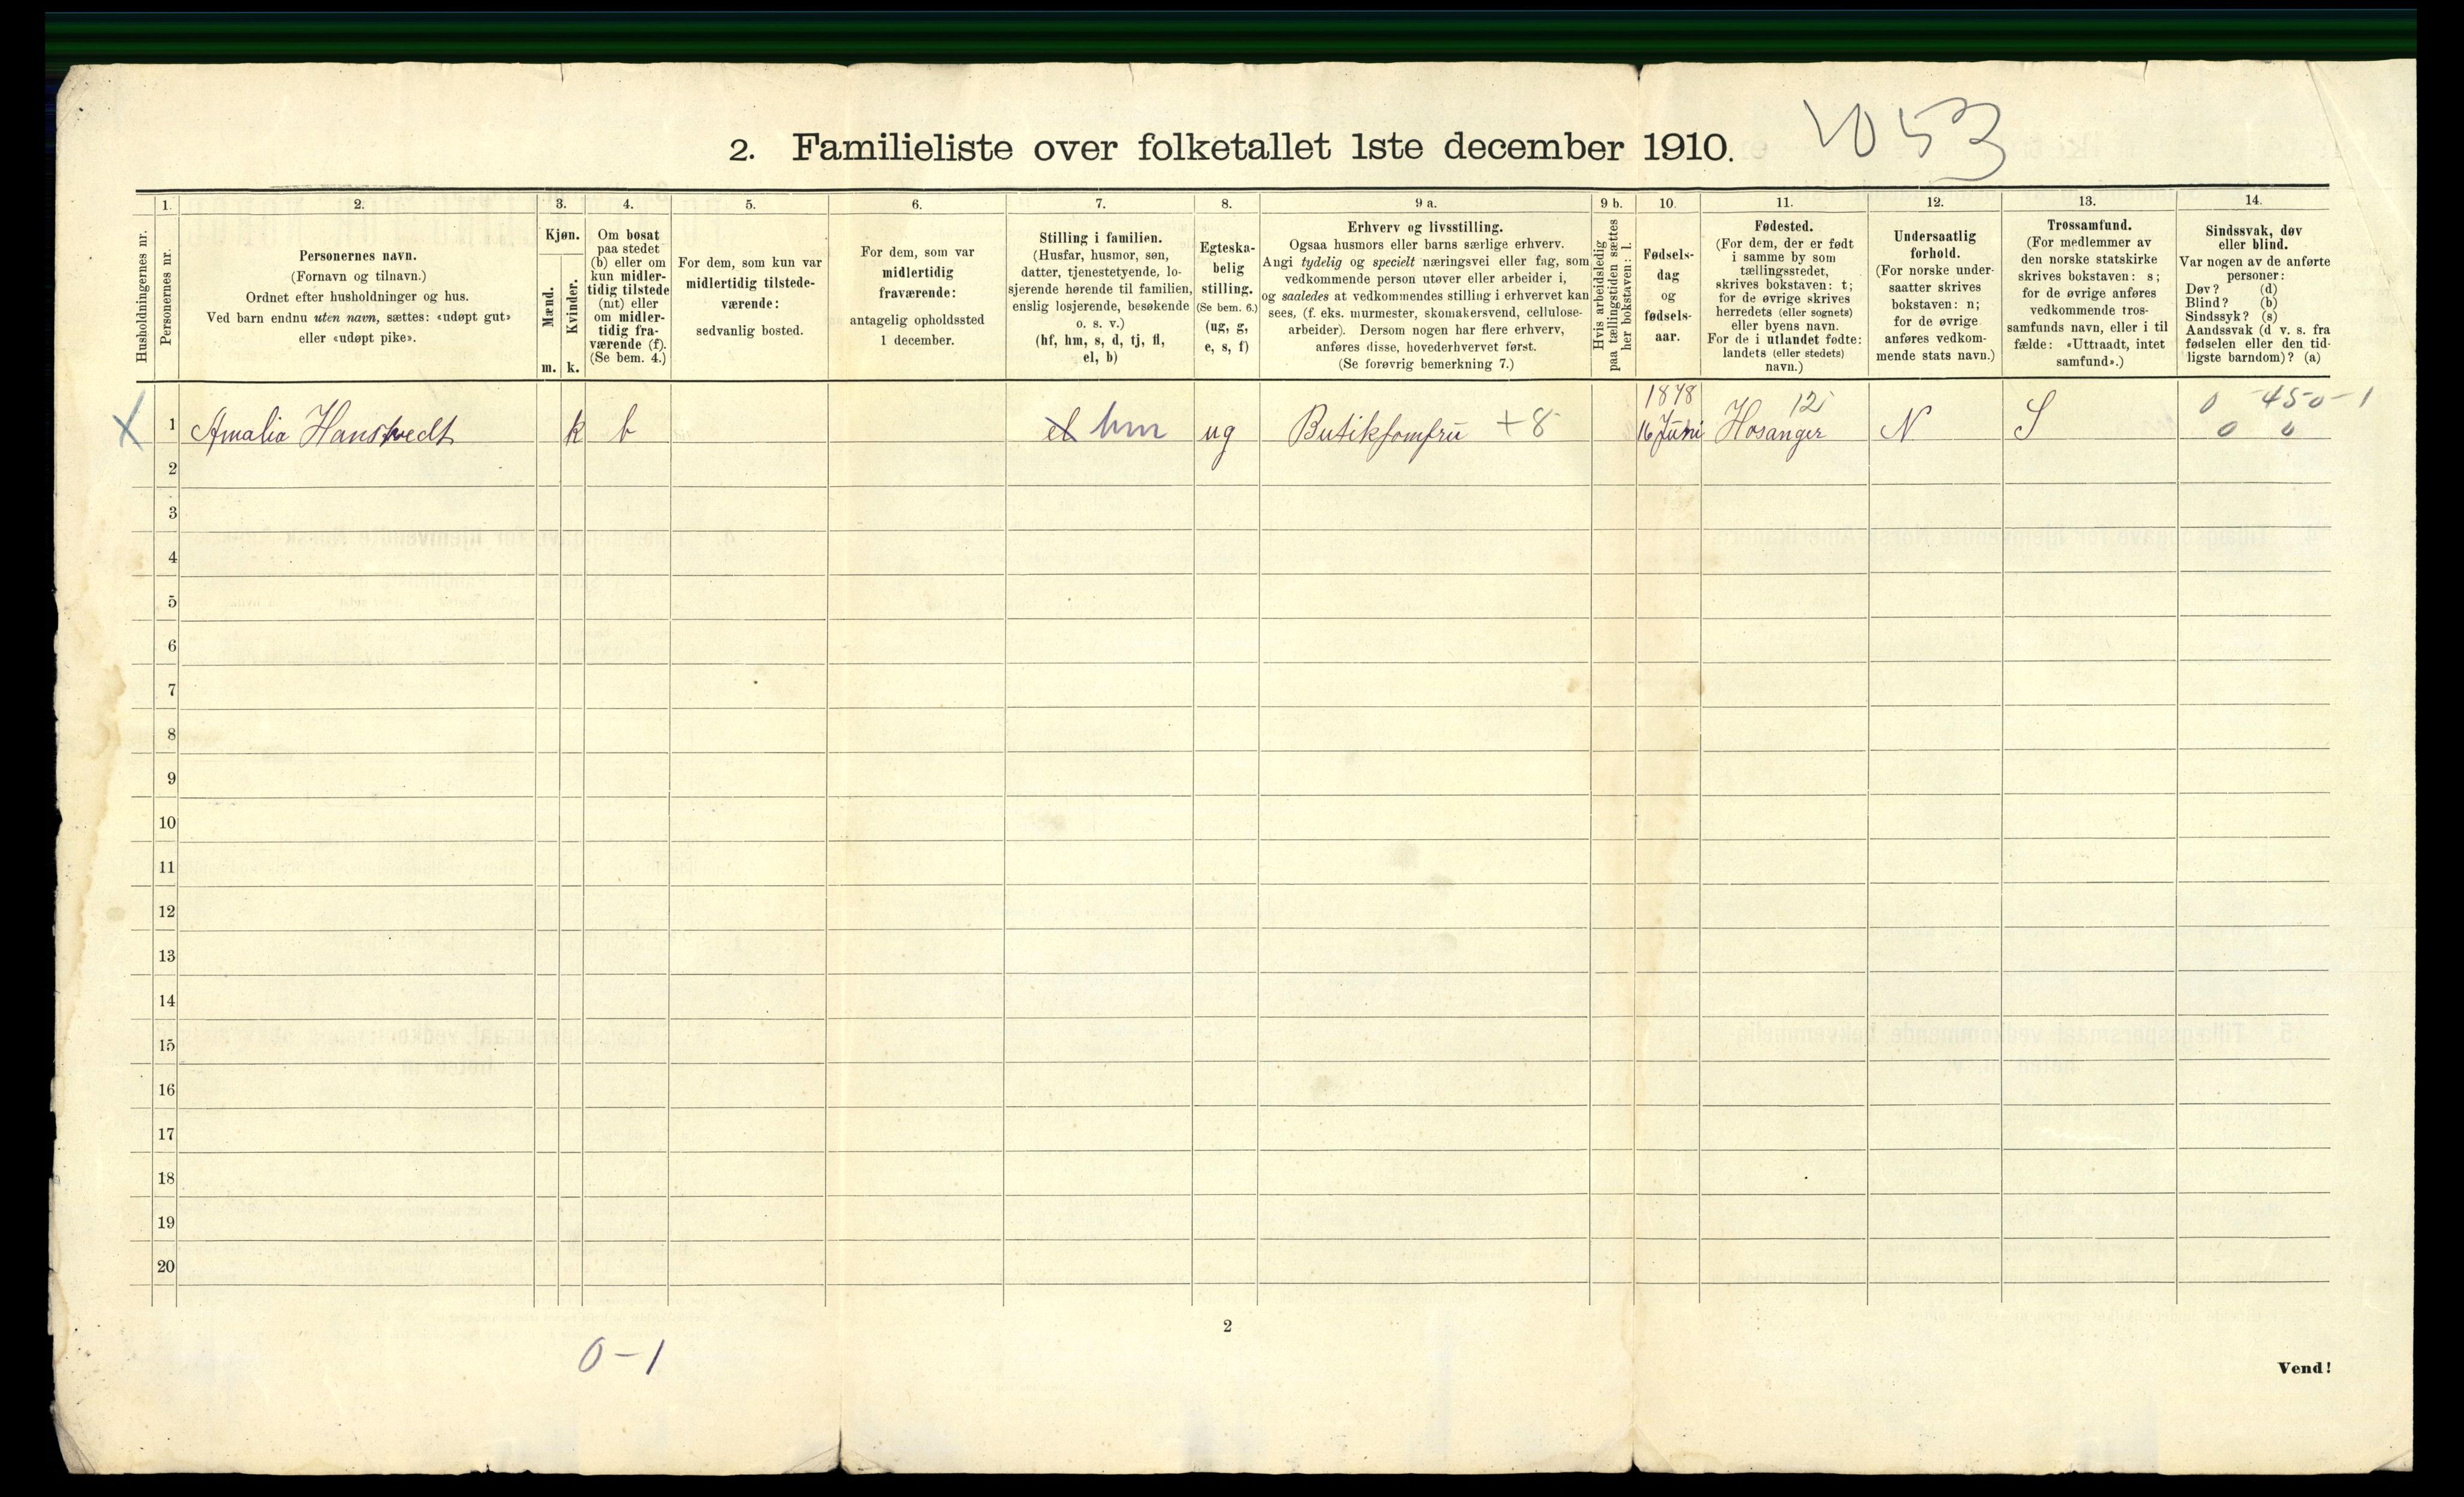 2. Familieliste over folketallet 1ste december 1910.
1053
1. 2. 3. 4. 5. 6. 7. 8. 9 a. 9 b. 10. 11. 12. 13. 14.
Husholdningernes nr.
Personernes nr.
Personernes navn.
(Fornavn og tilnavn.)
Ordnet efter husholdninger og hus.
Ved barn endnu uten navn, sættes: «udøpt gut»
eller «udøpt pike».
Kjøn.
Mænd.
Kvinder.
m. k.
Om bosat
paa stedet
(b) eller om
kun midler-
tidig tilstede
(mt) eller
om midler-
tidig fra-
værende (f).
(Se bem. 4.)
For dem, som kun var
midlertidig tilstede-
værende:
sedvanlig bosted.
For dem, som var
midlertidig
fraværende:
antagelig opholdssted
1 december.
Stilling i familien.
(Husfar, husmor, søn,
datter, tjenestetyende, lo-
sjerende hørende til familien,
enslig losjerende, besøkende
o. s. v.)
(hf, hm, s, d, tj, fl,
el, b)
Egteska-
belig
stilling.
(Se bem. 6.)
(ug, g,
e, s, f)
Erhverv og livsstilling.
Ogsaa husmors eller barns særlige erhverv.
Angi tydelig og specielt næringsvei eller fag, som
vedkommende person utøver eller arbeider i,
og saaledes at vedkommendes stilling i erhvervet kan
sees, (f. eks. murmester, skomakersvend, cellulose-
arbeider). Dersom nogen har flere erhverv,
anføres disse, hovederhvervet først.
(Se forøvrig bemerkning 7.)
Hvis arbeidsledig
paa tællingstiden sættes
her bokstaven: l.
Fødsels-
dag
og
fødsels-
aar.
Fødested.
(For dem, der er født
i samme by som
tællingsstedet,
skrives bokstaven: t;
for de øvrige skrives
herredets (eller sognets)
eller byens navn.
For de i utlandet fødte:
landets (eller stedets)
navn.)
Undersaatlig
forhold.
(For norske under-
saatter skrives
bokstaven: n;
for de øvrige
anføres vedkom-
mende stats navn.)
Trossamfund.
(For medlemmer av
den norske statskirke
skrives bokstaven: s;
for de øvrige anføres
vedkommende tros-
samfunds navn, eller i til
fælde: «Uttraadt, intet
samfund».)
Sindssvak, døv
eller blind.
Var nogen av de anførte
personer:
Døv? (d)
Blind? (b)
Sindssyk? (s)
Aandssvak (d v. s. fra
fødselen eller den tid-
ligste barndom)? (a)
1878 12 0 450-1
X 1 Amalia Hanstvedt k b el hm ug Butikjomfru +8 16 Juni Hosanger N S 0 0
2
3
4
5
6
7
8
9
10
11
12
13
14
15
16
17
18
19
20
2
0-1
Vend!